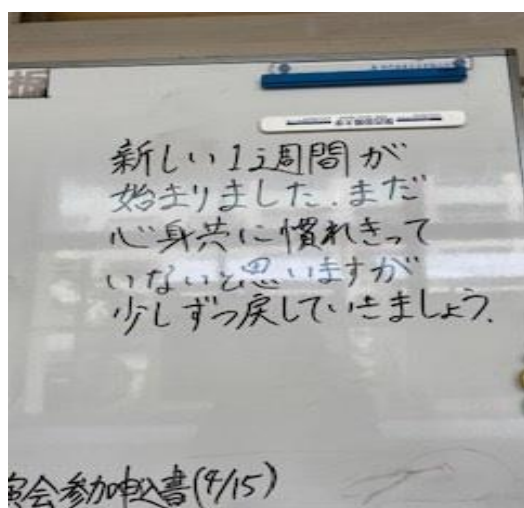 板
新しい1週間が
始まりました.まだ
心身共に慣れきって
いないと思いますが
少しずつ戻していきましょう.
演会参加申込書(4/15)